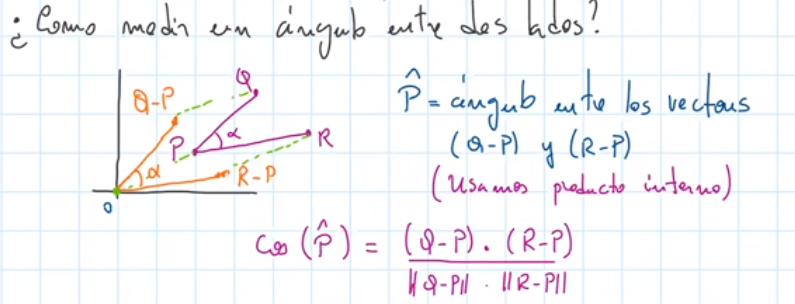 ¿Como medir un ángulo entre dos lados?
Q-P
Q
P
α
R
α
R-P
0
P̂ = ángulo entre los vectores
(Q-P) y (R-P)
(Usamos producto interno)
Cos (P̂) = (Q-P) . (R-P)
||Q-P|| . ||R-P||